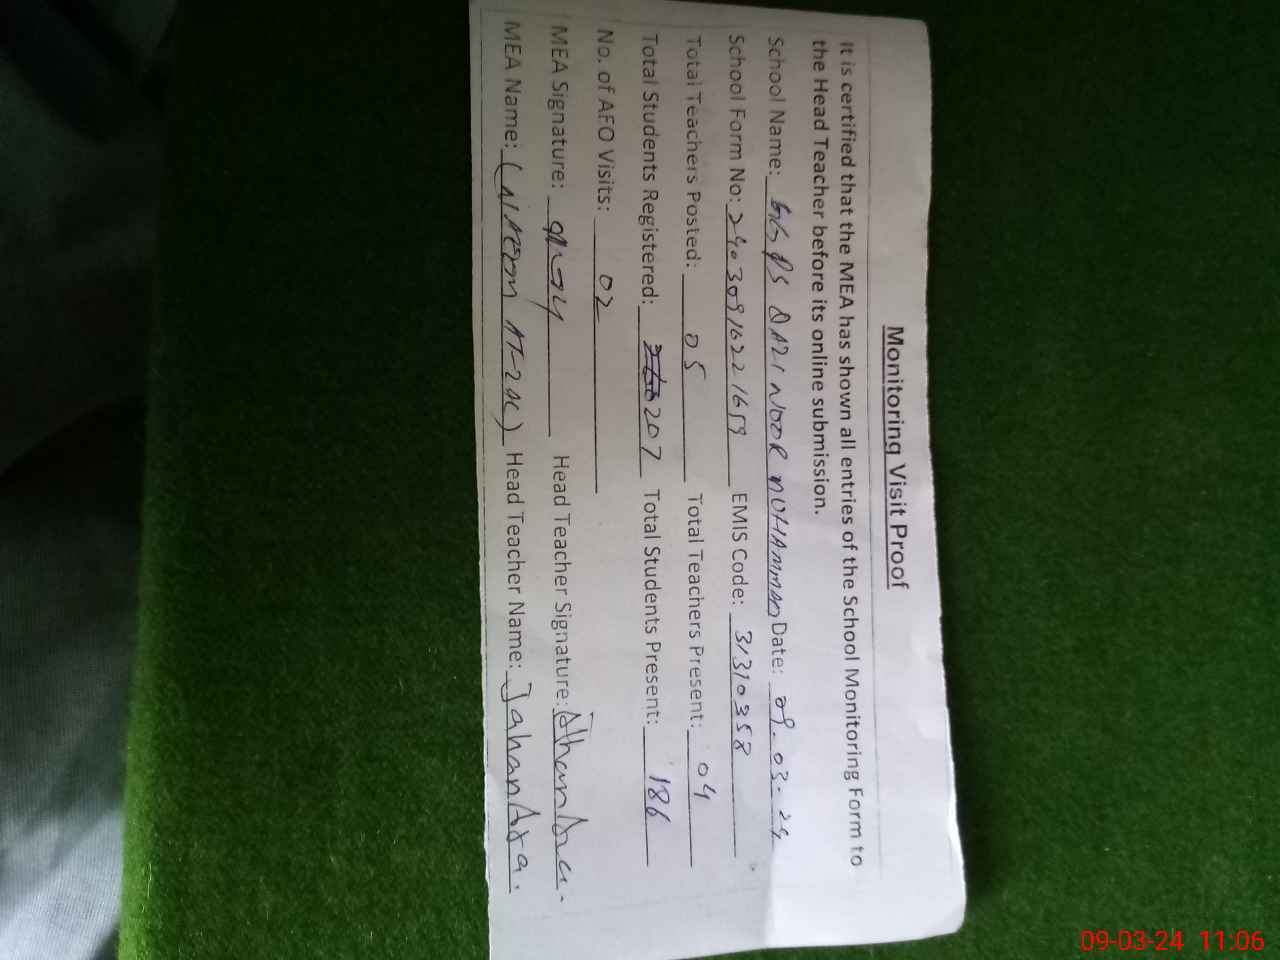 Monitoring Visit Proof
It is certified that the MEA has shown all entries of the School Monitoring Form to
the Head Teacher before its online submission.
School Name: GGPS QAZI NOOR MOHAMMAD Date: 09-03-24
School Form No: EMIS Code: 31310358
Total Teachers Posted: 05 Total Teachers Present: 04
Total Students Registered: 207 Total Students Present: 186
No. of AFO Visits: 02
MEA Signature: Head Teacher Signature:
MEA Name: Head Teacher Name: Jahan Ara.
09-03-24 11:06